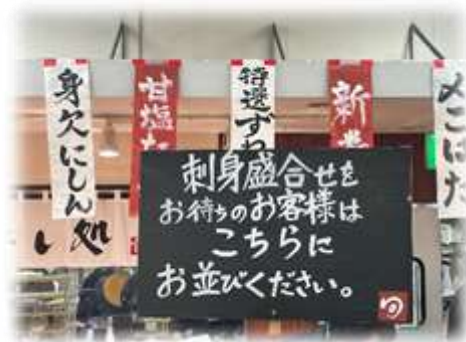 身欠にしん
甘塩た
特選ずわ
新巻
めこはだ
処
刺身盛合せを
お待ちのお客様は
こちらに
お並びください。